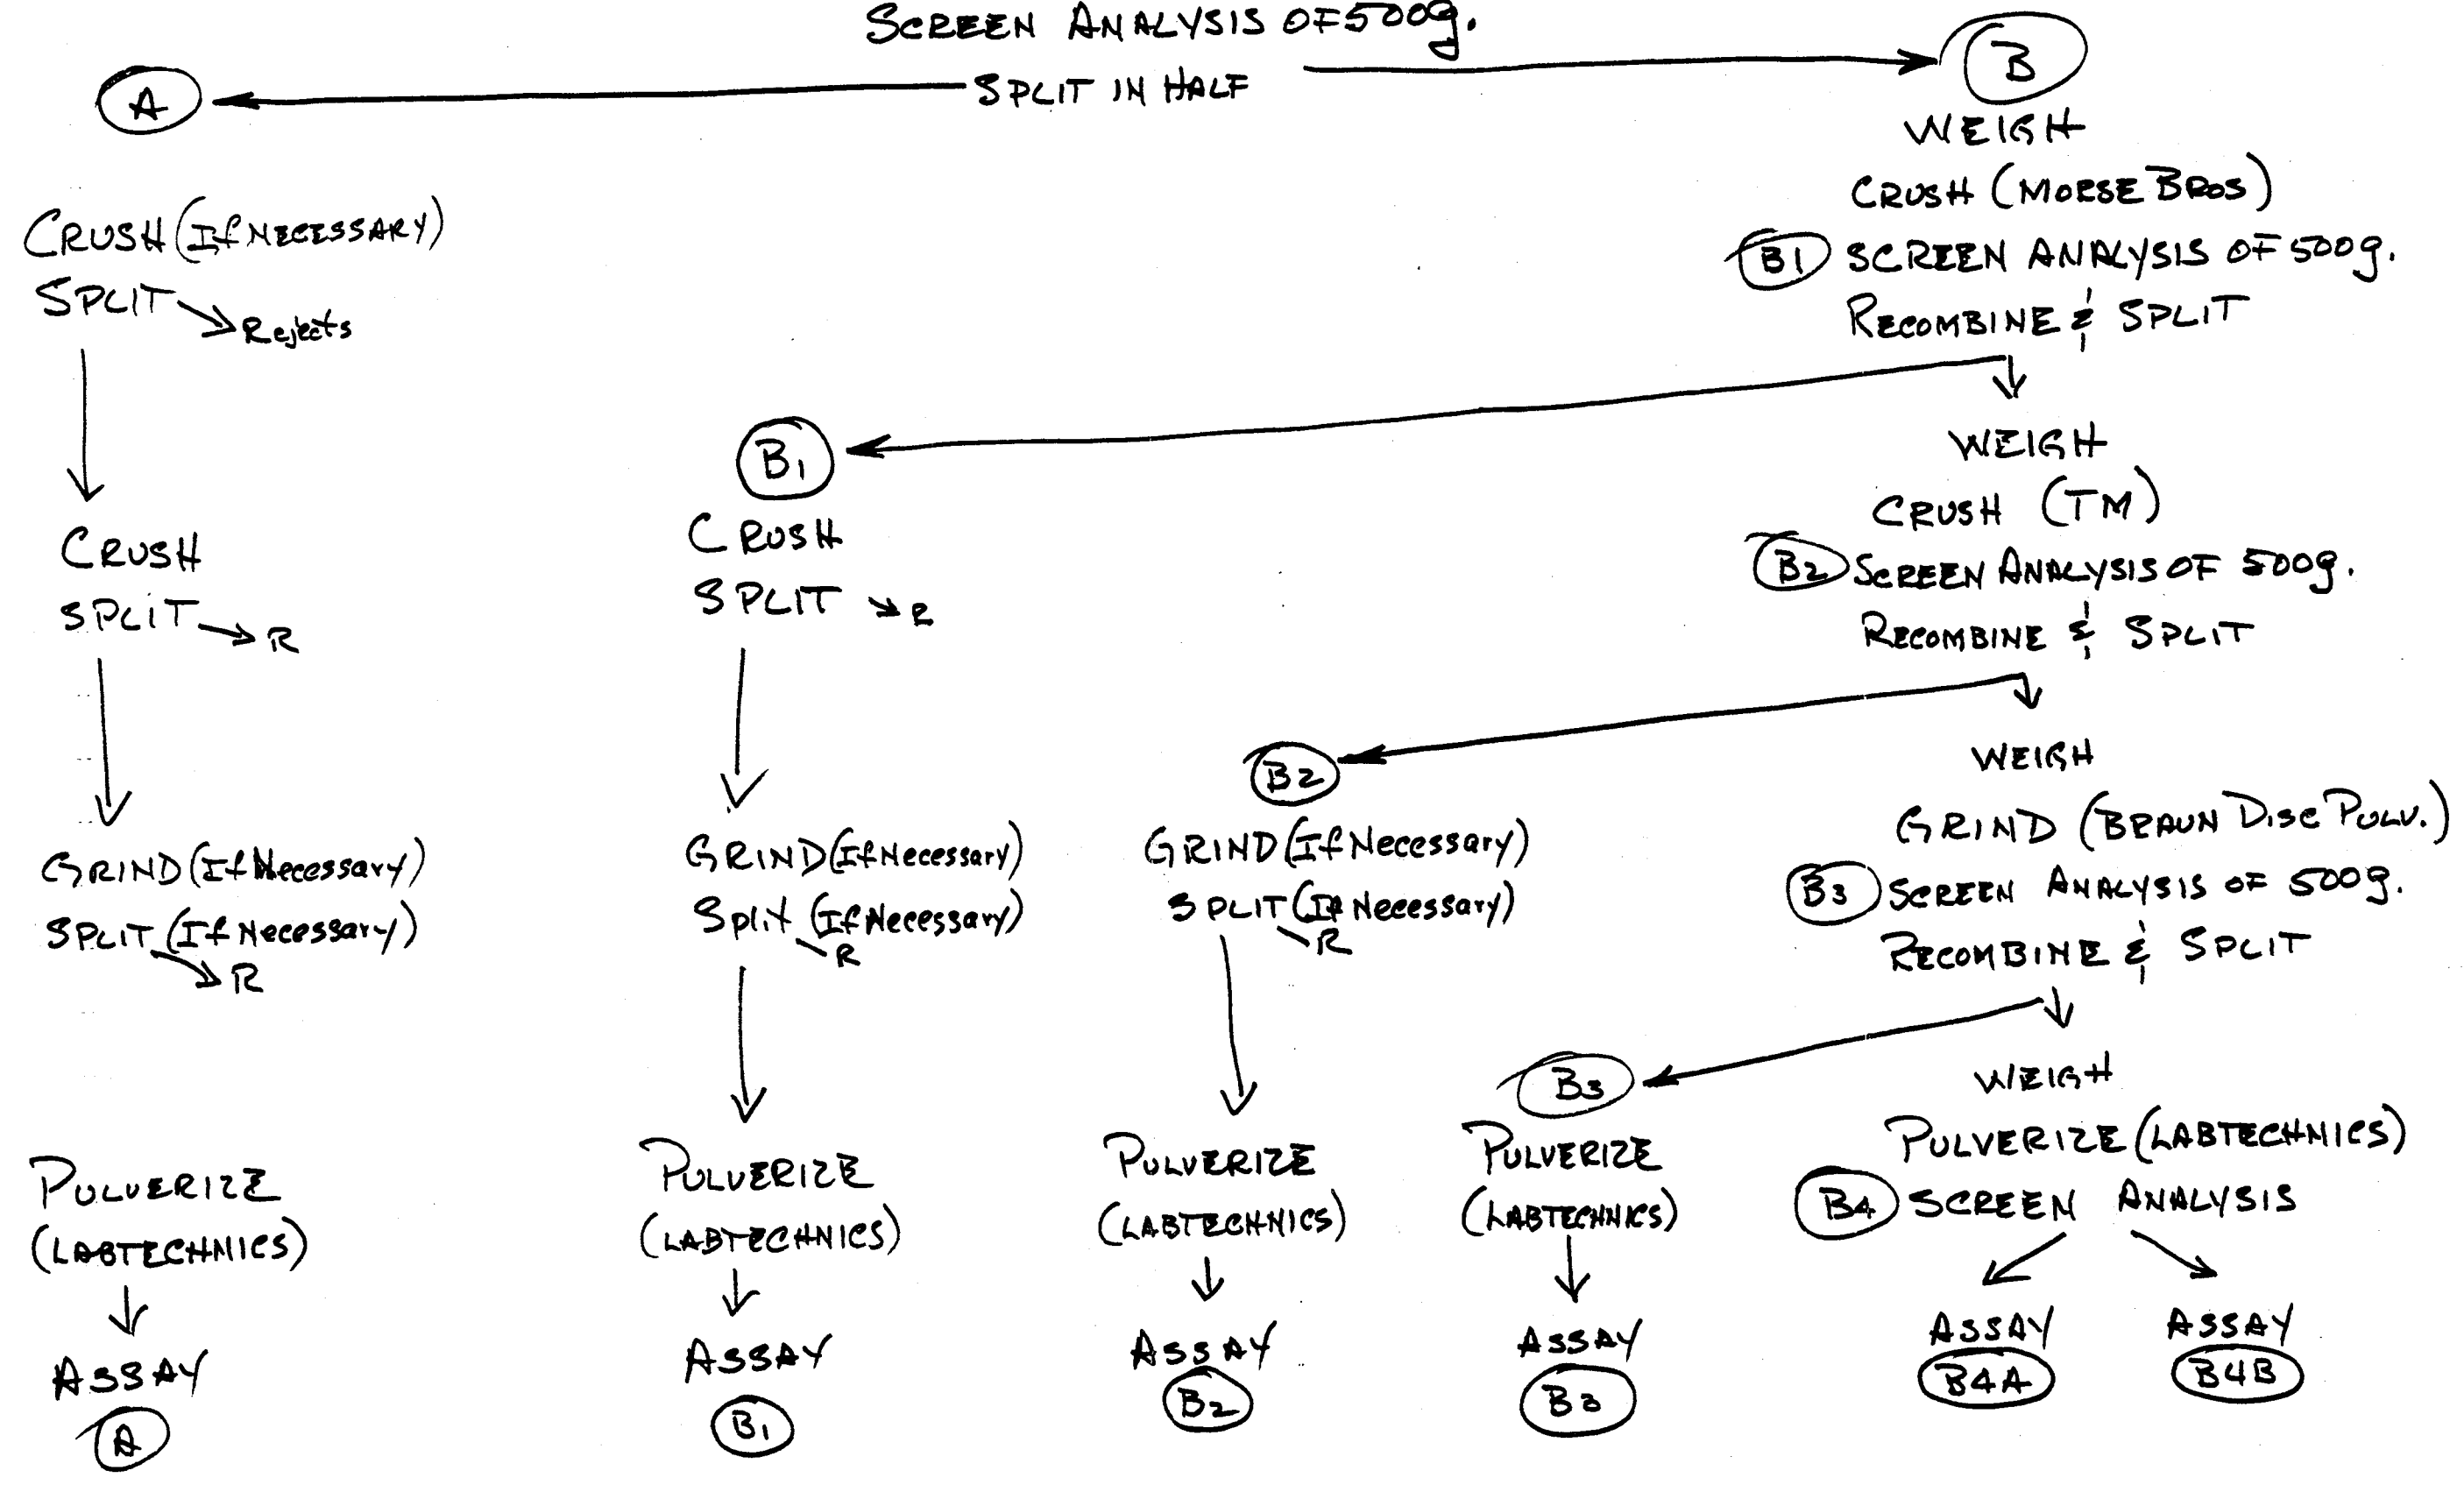 SCREEN ANALYSIS OF 500g.
SPLIT IN HALF
A
CRUSH (If NECESSARY)
SPLIT
Rejects
CRUSH
SPLIT
R
GRIND (If Necessary)
SPLIT (If Necessary)
R
PULVERIZE
(LABTECHNICS)
ASSAY
A
B1
CRUSH
SPLIT
R
GRIND (If Necessary)
Split (If Necessary)
R
PULVERIZE
(LABTECHNICS)
ASSAY
B1
B2
GRIND (If Necessary)
SPLIT (If Necessary)
R
PULVERIZE
(LABTECHNICS)
ASSAY
B2
B3
PULVERIZE
(LABTECHNICS)
ASSAY
B3
B
WEIGH
CRUSH (MORSE BROS)
B1 SCREEN ANALYSIS OF 500g.
RECOMBINE & SPLIT
WEIGH
CRUSH (TM)
B2 SCREEN ANALYSIS OF 500g.
RECOMBINE & SPLIT
WEIGH
GRIND (BRAUN DISC PULV.)
B3 SCREEN ANALYSIS OF 500g.
RECOMBINE & SPLIT
WEIGH
PULVERIZE (LABTECHNICS)
B4 SCREEN ANALYSIS
ASSAY
B4A
ASSAY
B4B